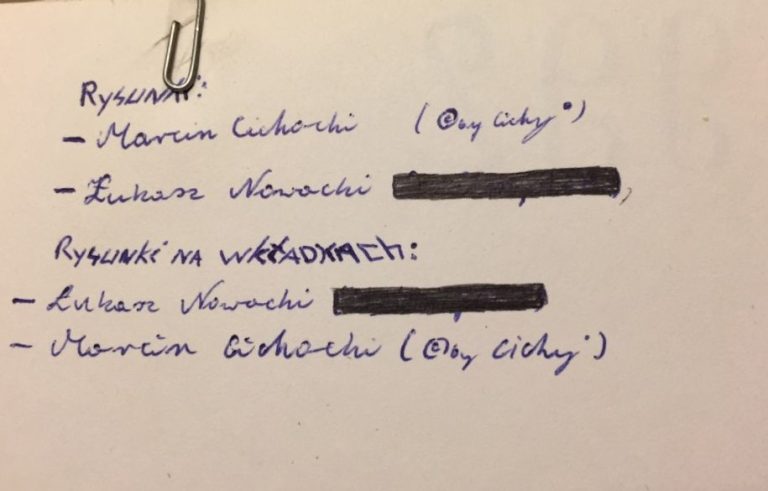 RYSUNKI:
- Marcin Cichocki (©by Cichy)
- Łukasz Nowacki
RYSUNKI NA WKŁADKACH:
- Łukasz Nowacki
- Marcin Cichocki (©by Cichy)